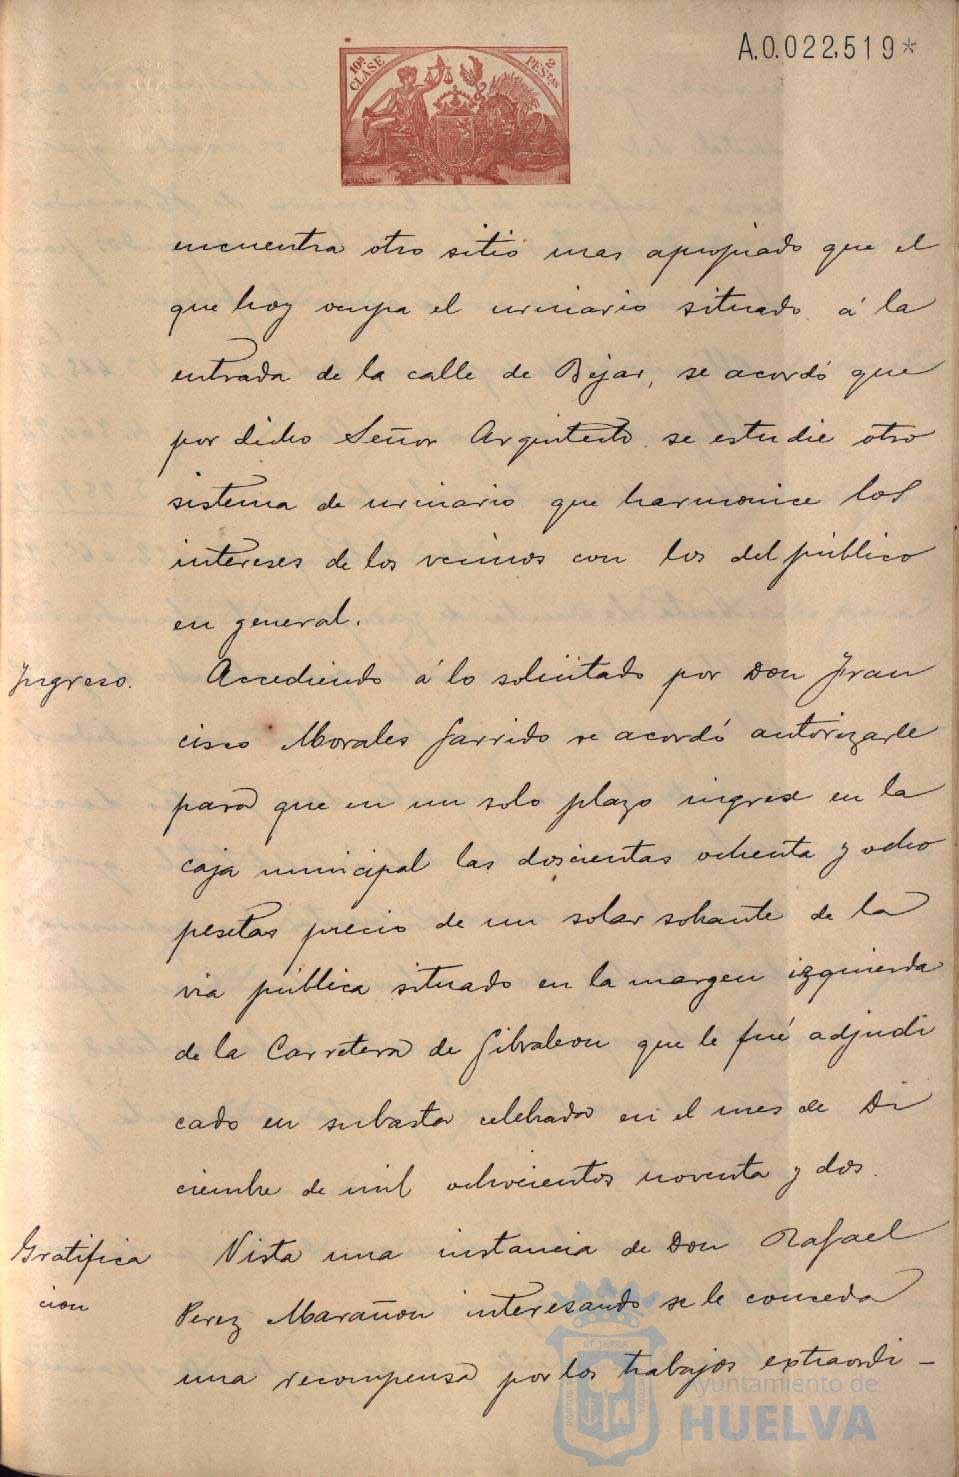 A.0.022,519*
10ª CLASE
2 PESTAS
encuentra otro sitio mas apropiado que el
que hoy ocupa el urinario situado á la
entrada de la calle de Bejar, se acordó que
por dicho Señor Arquitecto se estudie otro
sistema de urinario que harmonice los
intereses de los vecinos con los del público
en general.
Ingreso.
Accediendo á lo solicitado por Don Fran
cisco Morales Garrido se acordó autorizarle
para que en un solo plazo ingrese en la
caja municipal las doscientas ochenta y ocho
pesetas precio de un solar sobrante de la
via pública situado en la margen izquierda
de la Carretera de Gibraleon que le fué adjudi
cado en subasta celebrada en el mes de Di
ciembre de mil ochocientos noventa y dos.
Gratifica
cion
Vista una instancia de Don Rafael
Perez Marañon interesando se le conceda
una recompensa por los trabajos extraordi-
Ayuntamiento de
HUELVA